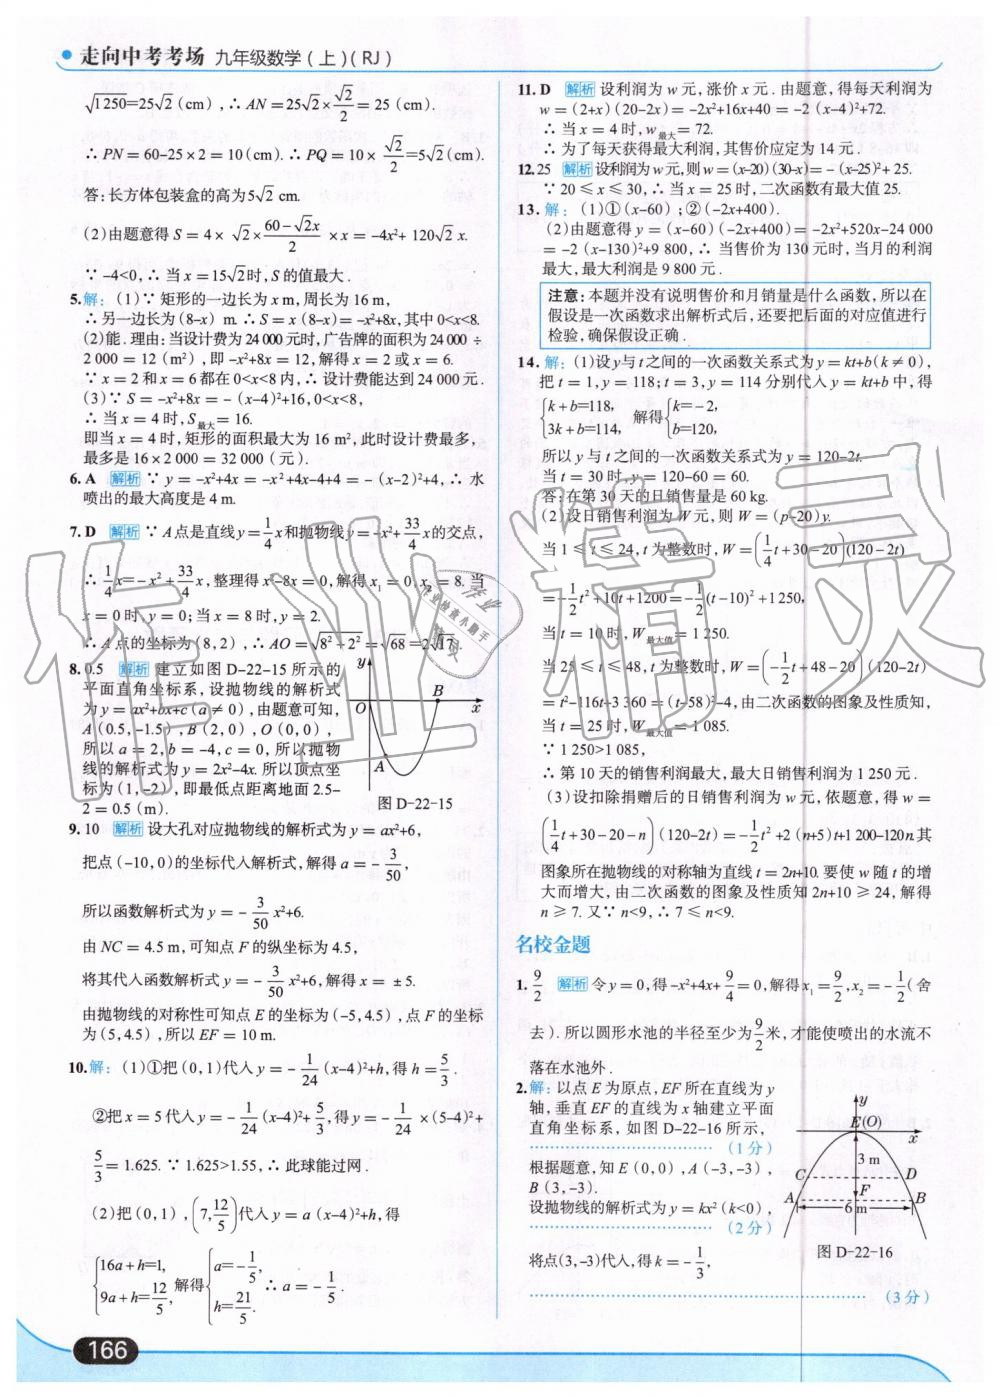 走向中考考场 九年级数学(上)(RJ)
√1 250=25√2(cm),∴AN=25√2×√2/2=25(cm).
∴PN=60-25×2=10(cm).∴PQ=10×√2/2=5√2(cm).
答:长方体包装盒的高为5√2 cm.
(2)由题意得S=4×√2×(60-√2x)/2×x=-4x²+120√2x.
∵-4<0,∴当x=15√2时,S的值最大.
5.解:(1)∵矩形的一边长为x m,周长为16 m,
∴另一边长为(8-x) m.∴S=x(8-x)=-x²+8x,其中0<x<8.
(2)能.理由:当设计费为24 000元时,广告牌的面积为24 000÷
2 000=12(m²),即-x²+8x=12,解得x=2或x=6.
∵x=2和x=6都在0<x<8内,∴设计费能达到24 000元.
(3)∵S=-x²+8x=-(x-4)²+16,0<x<8,
∴当x=4时,S最大=16.
即当x=4时,矩形的面积最大为16 m²,此时设计费最多,
最多是16×2 000=32 000(元).
6.A 解析 ∵y=-x²+4x=-x²+4x-4+4=-(x-2)²+4,∴水
喷出的最大高度是4 m.
7.D 解析 ∵A点是直线y=1/4x和抛物线y=-x²+33/4x的交点,
∴1/4x=-x²+33/4x,整理得x²-8x=0,解得x₁=0,x₂=8.当
x=0时,y=0;当x=8时,y=2.
∴A点的坐标为(8,2),∴AO=√8²+2²=√68=2√17.
8.0.5 解析 建立如图D-22-15所示的
平面直角坐标系,设抛物线的解析式
为y=ax²+bx+c(a≠0),由题意可知,
A(0.5,-1.5),B(2,0),O(0,0),
所以a=2,b=-4,c=0,所以抛物
线的解析式为y=2x²-4x.所以顶点坐
标为(1,-2),即最低点距离地面2.5-
2=0.5(m).
y
B
O
x
A
图D-22-15
9.10 解析 设大孔对应抛物线的解析式为y=ax²+6,
把点(-10,0)的坐标代入解析式,解得a=-3/50,
所以函数解析式为y=-3/50x²+6.
由NC=4.5 m,可知点F的纵坐标为4.5,
将其代入函数解析式y=-3/50x²+6,解得x=±5.
由抛物线的对称性可知点E的坐标为(-5,4.5),点F的坐标
为(5,4.5),所以EF=10 m.
10.解:(1)①把(0,1)代入y=-1/24(x-4)²+h,得h=5/3.
②把x=5代入y=-1/24(x-4)²+5/3,得y=-1/24×(5-4)²+
5/3=1.625.∵1.625>1.55,∴此球能过网.
(2)把(0,1),(7,12/5)代入y=a(x-4)²+h,得
{16a+h=1, 9a+h=12/5, 解得{a=-1/5, h=21/5. ∴a=-1/5.
166
11.D 解析 设利润为w元,涨价x元.由题意,得每天利润为
w=(2+x)(20-2x)=-2x²+16x+40=-2(x-4)²+72.
∴当x=4时,w最大=72.
∴为了每天获得最大利润,其售价应定为14元.
12.25 解析 设利润为w元,则w=(x-20)(30-x)=-(x-25)²+25.
∵20≤x≤30,∴当x=25时,二次函数有最大值25.
13.解:(1)①(x-60);②(-2x+400).
(2)由题意得y=(x-60)(-2x+400)=-2x²+520x-24 000
=-2(x-130)²+9 800,∴当售价为130元时,当月的利润
最大,最大利润是9 800元.
注意:本题并没有说明售价和月销量是什么函数,所以在
假设是一次函数求出解析式后,还要把后面的对应值进行
检验,确保假设正确.
14.解:(1)设y与t之间的一次函数关系式为y=kt+b(k≠0),
把t=1,y=118;t=3,y=114分别代入y=kt+b中,得
{k+b=118, 3k+b=114, 解得{k=-2, b=120,
所以y与t之间的一次函数关系式为y=120-2t.
当t=30时,y=120-60=60.
答:在第30天的日销售量是60 kg.
(2)设日销售利润为W元,则W=(p-20)y.
当1≤t≤24,t为整数时,W=(1/4t+30-20)(120-2t)
=-1/2t²+10t+1200=-1/2(t-10)²+1250,
当t=10时,W最大值=1 250.
当25≤t≤48,t为整数时,W=(-1/2t+48-20)(120-2t)
=t²-116t+3 360=(t-58)²-4,由二次函数的图象及性质知,
当t=25时,W最大值=1 085.
∵1 250>1 085,
∴第10天的销售利润最大,最大日销售利润为1 250元.
(3)设扣除捐赠后的日销售利润为w元,依题意,得w=
(1/4t+30-20-n)(120-2t)=-1/2t²+2(n+5)t+1 200-120n.其
图象所在抛物线的对称轴为直线t=2n+10.要使w随t的增
大而增大,由二次函数的图象及性质知2n+10≥24,解得
n≥7.又∵n<9,∴7≤n<9.
名校金题
1.9/2 解析 令y=0,得-x²+4x+9/4=0,解得x₁=9/2,x₂=-1/2(舍
去).所以圆形水池的半径至少为9/2米,才能使喷出的水流不
落在水池外.
2.解:以点E为原点,EF所在直线为y
轴,垂直EF的直线为x轴建立平面
直角坐标系,如图D-22-16所示,
(1分)
根据题意,知E(0,0),A(-3,-3),
B(3,-3).
设抛物线的解析式为y=kx²(k<0),
(2分)
将点(3,-3)代入,得k=-1/3,
(3分)
y
E(O)
x
3 m
C
D
F
A
B
6 m
图D-22-16
作业精灵